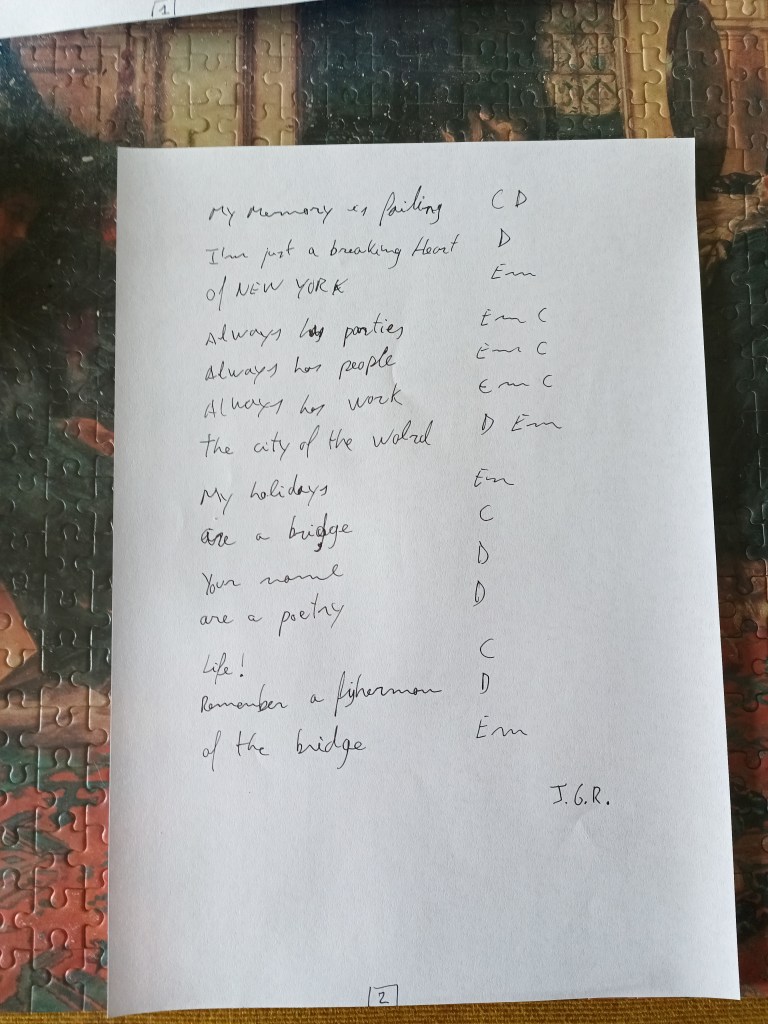 1
My Memory is failing C D
I'm just a breaking Heart D
of NEW YORK Em
Always has parties Em C
Always has people Em C
Always has work Em C
the city of the wolrd D Em
My holidays Em
are a bridge C
Your name D
are a poetry D
Life! C
Remember a fisherman D
of the bridge Em
J.G.R.
2